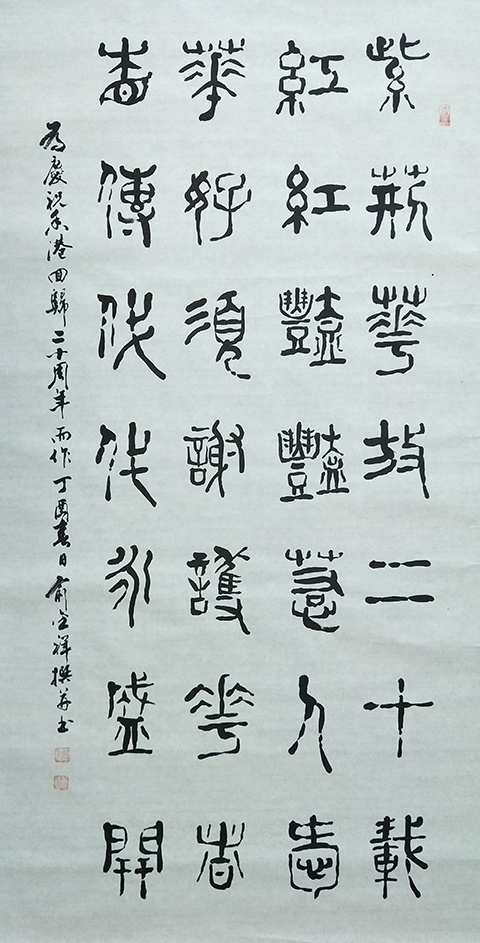 紫荊花放二十載
紅紅豔豔惹人愛
華好須謝護花者
傳代代永盛開
為慶祝香港回歸二十周年而作丁酉春日俞宏祥撰并書